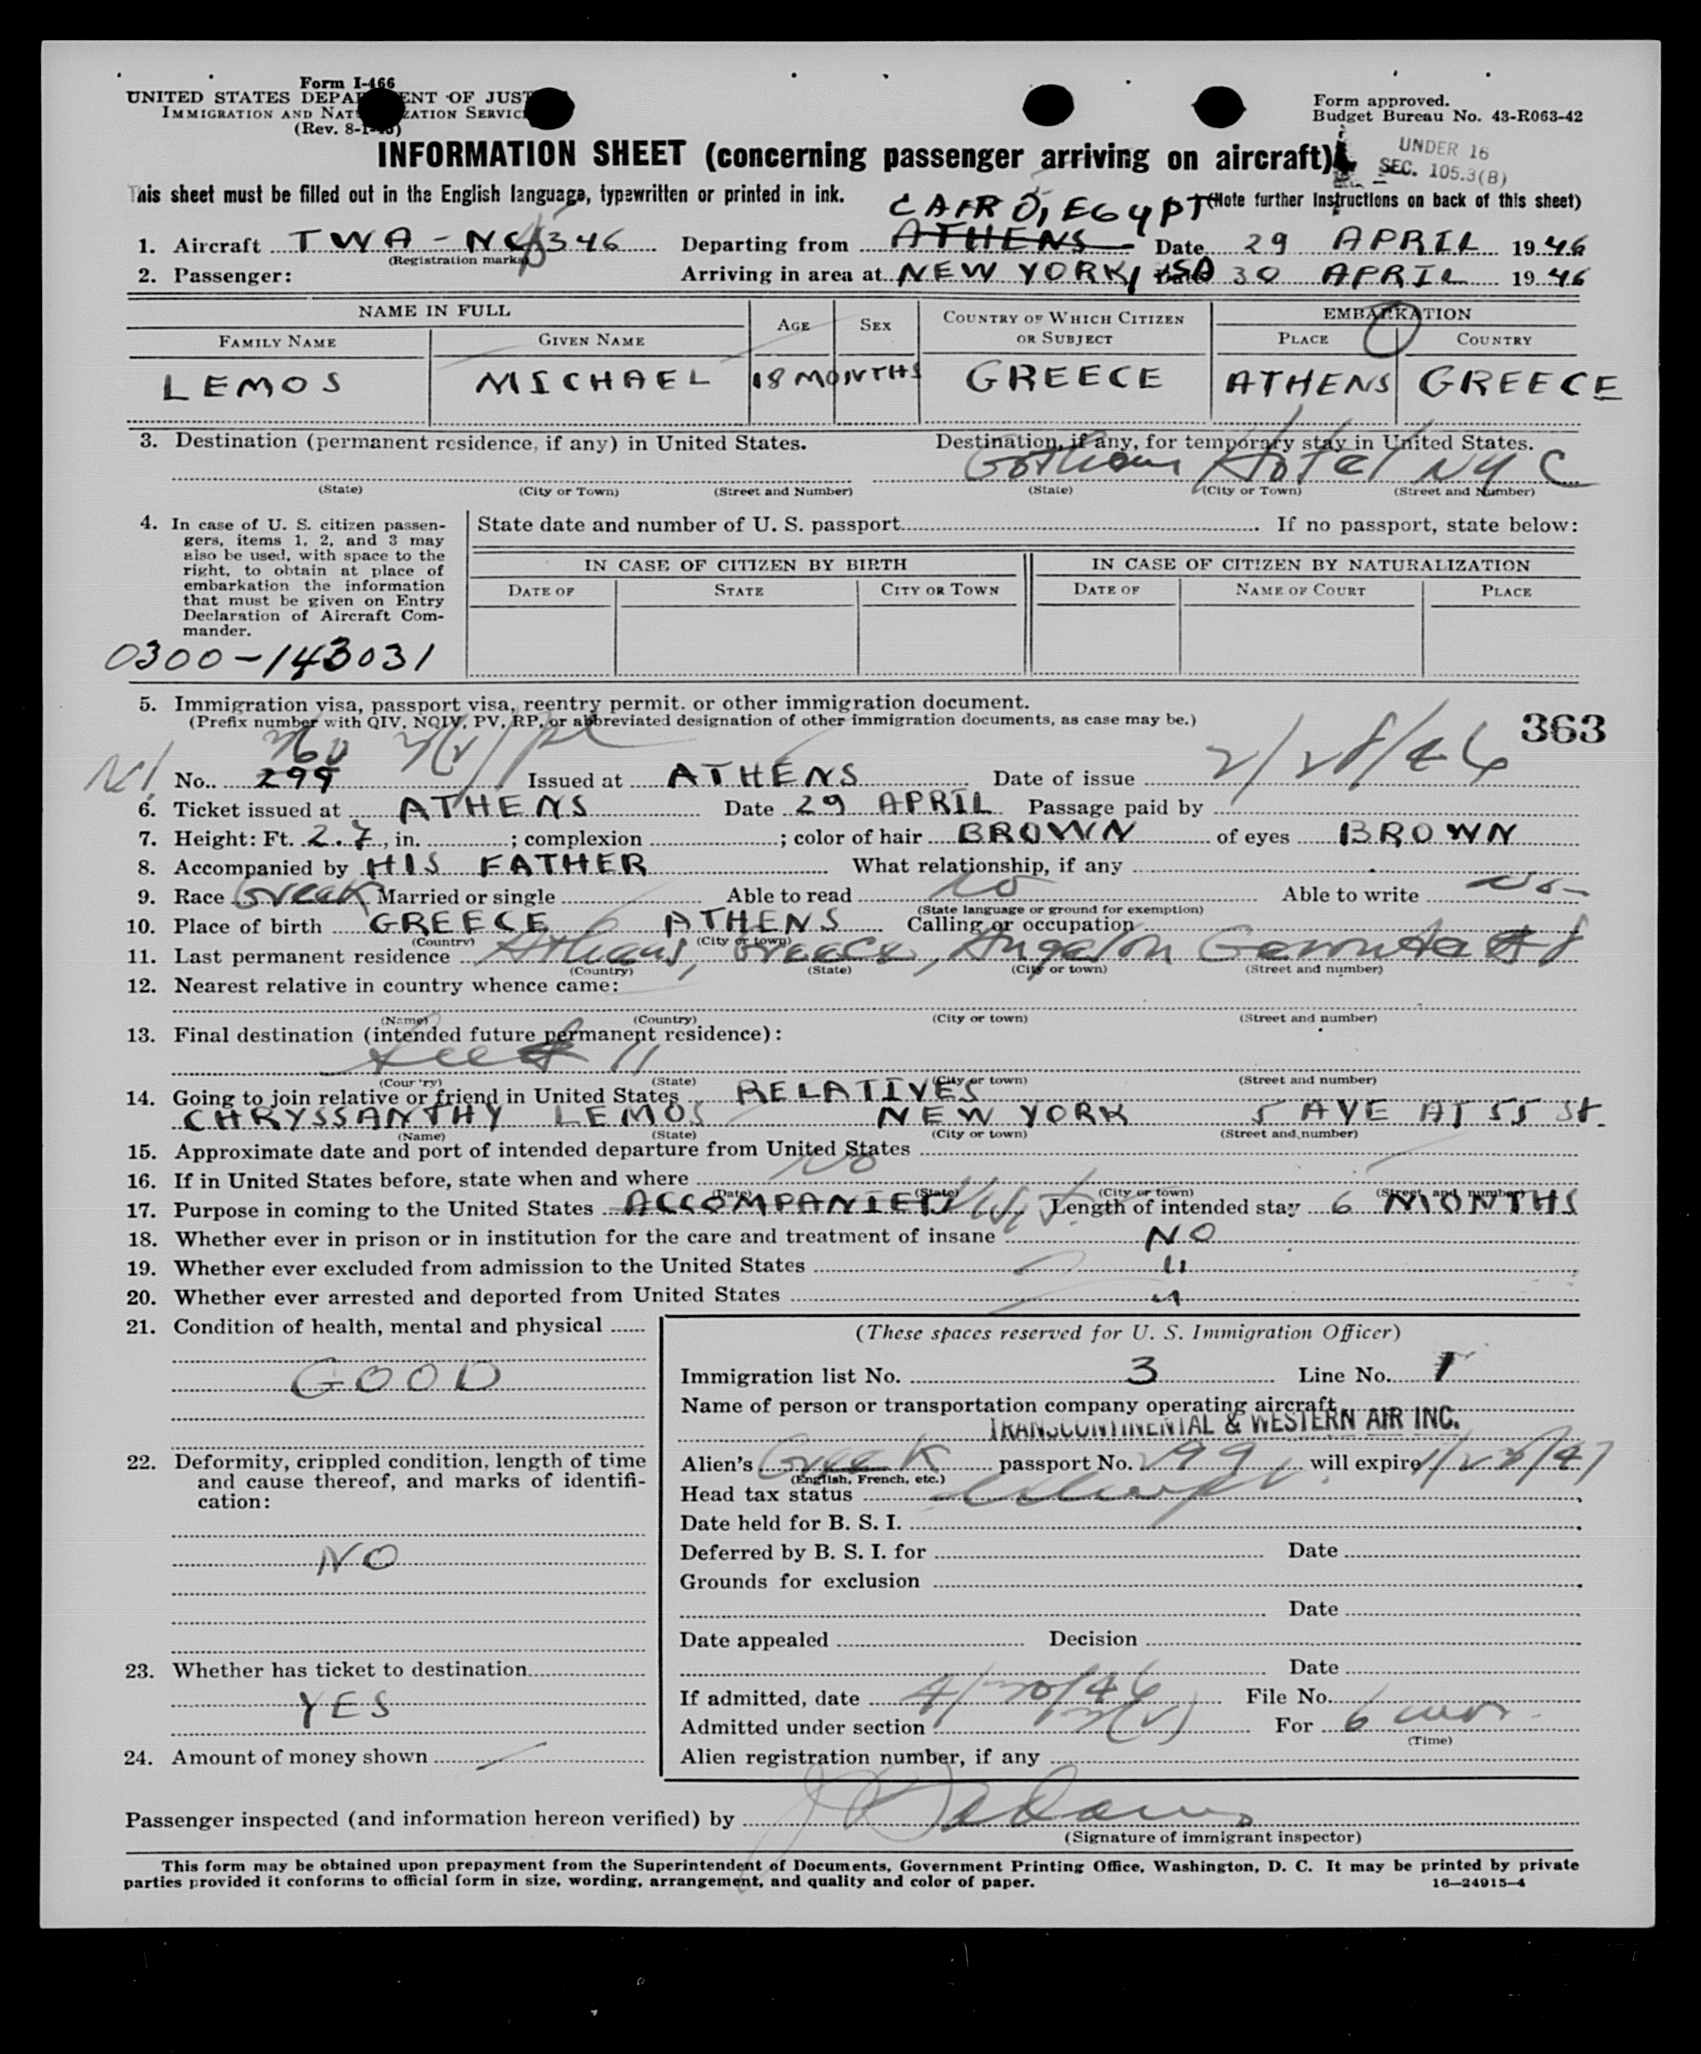 Form I-466
UNITED STATES DEPARTMENT OF JUSTICE
IMMIGRATION AND NATURALIZATION SERVICE
(Rev. 8-1-45)
Form approved.
Budget Bureau No. 43-R063-42
INFORMATION SHEET (concerning passenger arriving on aircraft)
UNDER 16
SEC. 105.3(B)
This sheet must be filled out in the English language, typewritten or printed in ink.
(Note further Instructions on back of this sheet)
CAIRO, EGYPT
1. Aircraft TWA - NC 346 Departing from ATHENS Date 29 APRIL 1946
(Registration marks)
2. Passenger: Arriving in area at NEW YORK, USA Date 30 APRIL 1946
NAME IN FULL AGE SEX COUNTRY OF WHICH CITIZEN OR SUBJECT EMBARKATION
FAMILY NAME GIVEN NAME PLACE COUNTRY
LEMOS MICHAEL 18 MONTHS GREECE ATHENS GREECE
3. Destination (permanent residence, if any) in United States. Destination, if any, for temporary stay in United States.
Gotham Hotel NYC
(State) (City or Town) (Street and Number) (State) (City or Town) (Street and Number)
4. In case of U. S. citizen passen-
gers, items 1, 2, and 3 may
also be used, with space to the
right, to obtain at place of
embarkation the information
that must be given on Entry
Declaration of Aircraft Com-
mander.
State date and number of U. S. passport. If no passport, state below:
IN CASE OF CITIZEN BY BIRTH IN CASE OF CITIZEN BY NATURALIZATION
DATE OF STATE CITY OR TOWN DATE OF NAME OF COURT PLACE
0300-143031
5. Immigration visa, passport visa, reentry permit. or other immigration document.
(Prefix number with QIV, NQIV, PV, RP, or abbreviated designation of other immigration documents, as case may be.)
363
No. 299 Issued at ATHENS Date of issue 2/28/46
6. Ticket issued at ATHENS Date 29 APRIL Passage paid by
7. Height: Ft. 2.7, in. ; complexion ; color of hair BROWN of eyes BROWN
8. Accompanied by HIS FATHER What relationship, if any
9. Race Greek Married or single Able to read no Able to write no
(State language or ground for exemption)
10. Place of birth GREECE ATHENS Calling or occupation
(Country) (City or town)
11. Last permanent residence Athens, Greece, Angelou Geronta # 8
(Country) (State) (City or town) (Street and number)
12. Nearest relative in country whence came:
(Name) (Country) (City or town) (Street and number)
13. Final destination (intended future permanent residence):
See # 11
(Country) (State) (City or town) (Street and number)
14. Going to join relative or friend in United States RELATIVES
CHRYSSANTHY LEMOS NEW YORK 5 AVE AT 55 St.
(Name) (State) (City or town) (Street and number)
15. Approximate date and port of intended departure from United States
16. If in United States before, state when and where No
(Date) (State) (City or town) (Street and number)
17. Purpose in coming to the United States ACCOMPANIED Visit Length of intended stay 6 MONTHS
18. Whether ever in prison or in institution for the care and treatment of insane NO
19. Whether ever excluded from admission to the United States "
20. Whether ever arrested and deported from United States "
21. Condition of health, mental and physical
GOOD
22. Deformity, crippled condition, length of time
and cause thereof, and marks of identifi-
cation:
NO
23. Whether has ticket to destination
YES
24. Amount of money shown
(These spaces reserved for U. S. Immigration Officer)
Immigration list No. 3 Line No. 1
Name of person or transportation company operating aircraft
TRANSCONTINENTAL & WESTERN AIR INC.
Alien's Greek passport No. 299 will expire 1/23/47
(English, French, etc.)
Head tax status
Date held for B. S. I.
Deferred by B. S. I. for Date
Grounds for exclusion
Date
Date appealed Decision
Date
If admitted, date 4/30/46 File No.
Admitted under section 3(2) For 6 mos.
(Time)
Alien registration number, if any
Passenger inspected (and information hereon verified) by
(Signature of immigrant inspector)
This form may be obtained upon prepayment from the Superintendent of Documents, Government Printing Office, Washington, D. C. It may be printed by private
parties provided it conforms to official form in size, wording, arrangement, and quality and color of paper.
16—24915-4